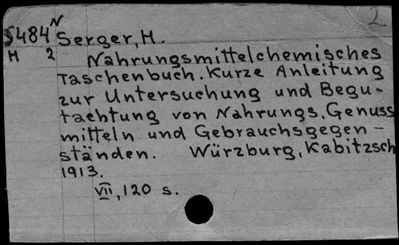 2
S484N Serger, H.
M 2 Nahrungsmittelchemisches
Taschenbuch. Kurze Anleitung
zur Untersuchung und Begu-
tachtung von Nahrungs. Genuss
mitteln und Gebrauchsgegen-
ständen. Würzburg, Kabitzsch
1913.
VII, 120 s.